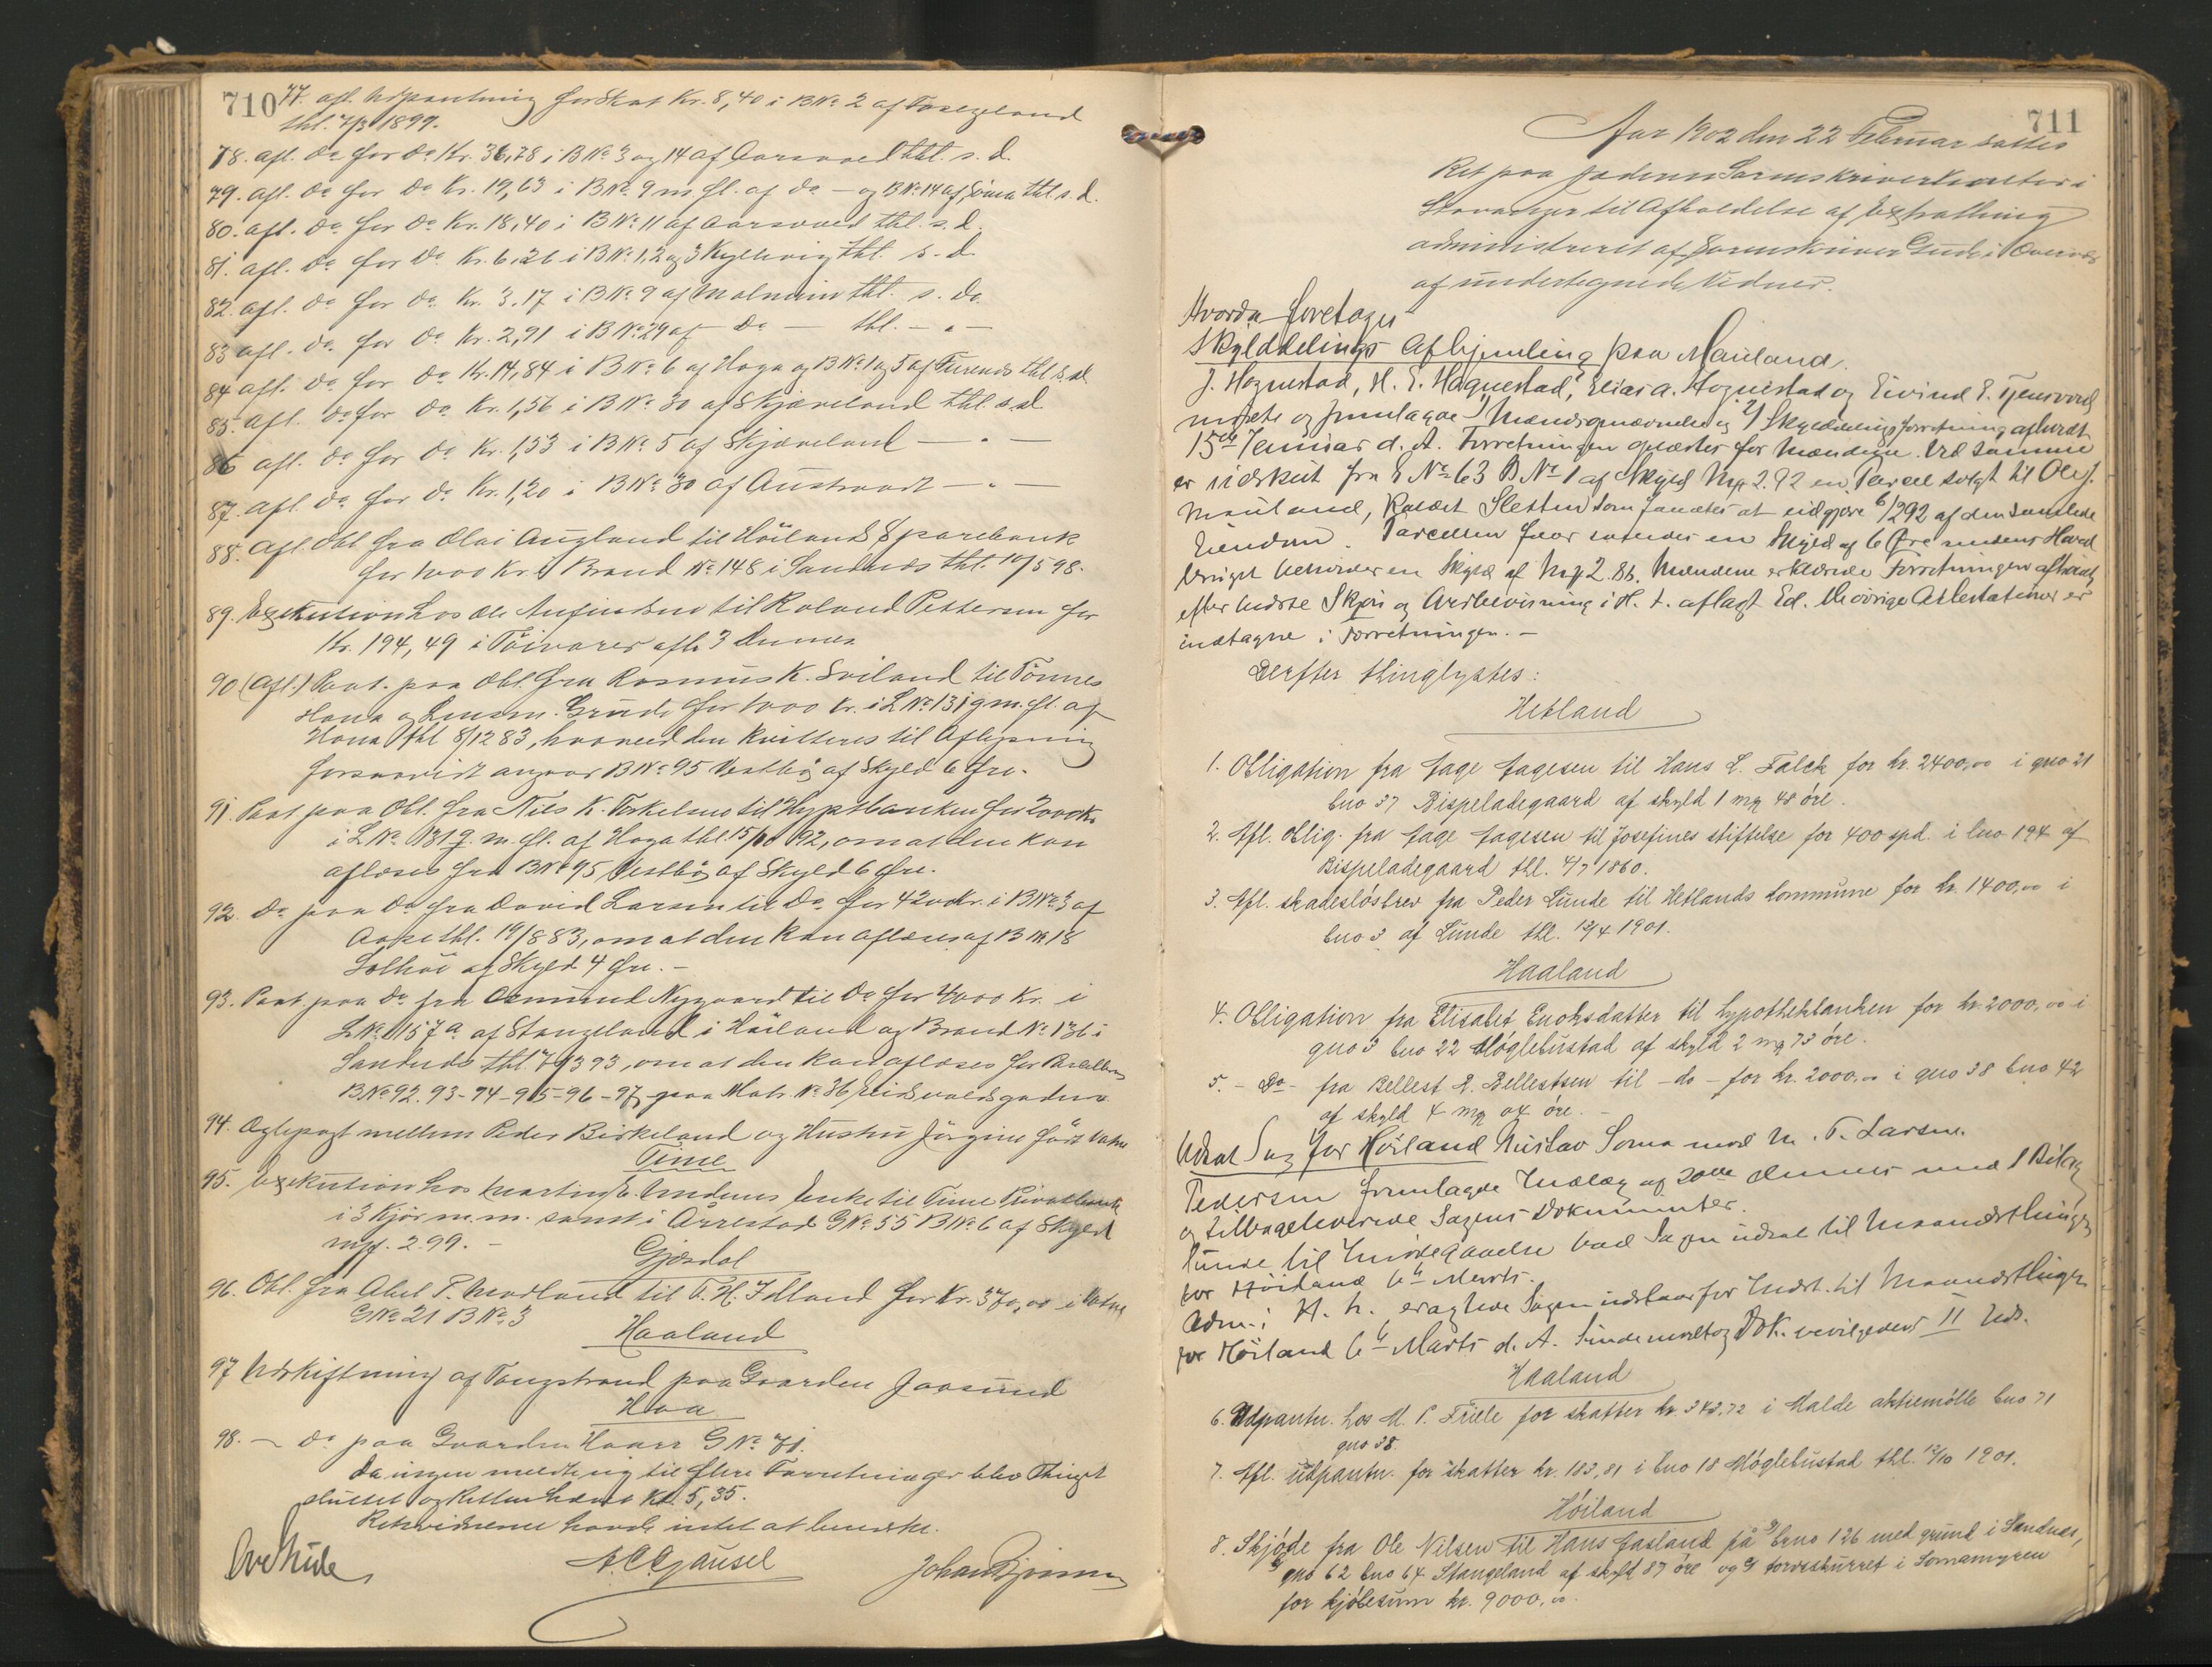 710
77. afl. Udpantning for Skat Kr. 8,40 i BNo 2 af
thl. 7/3 1899.
78. afl. do for do Kr. 36,78 i BNo 3 og 14 af Aarsvoll thl. s. d.
79. afl. do for do Kr. 19,63 i BNo 9 m fl. af do - og BNo 14 af Soma thl. s. d.
80. afl. do for do Kr. 18,40 i BNo 11 af Aarsvoll thl. s. d.
81. afl. do for do Kr. 6,26 i BNo 1, 2 og 3 Kyllesvig thl. s. d.
82. afl. do for do Kr. 3.17 i BNo 9 af Malmein thl. s. do
83 afl. do for do Kr. 2,91 i BNo 29 af do - thl. - " -
84 afl. do for do Kr. 14,84 i BNo 6 af Hogn og BNo 1 og 5 af Furenes thl s. d.
85. afl. do for do Kr. 1,56 i BNo 30 af Skjæveland thl. s. d.
86 afl. do for do Kr. 1,53 i BNo 5 af Skjæveland - " -
87. afl. do for do Kr. 1,20 i BNo 30 af Austraadt - " -
88. Afl. Obl fra Olai Augland til Höilands Sparebank
for 1000 Kr. i Brand No 148 i Sandnes thl. 10/5 98.
89. Exekution hos Ole Anfindsen til Roland Pettersen for
Kr. 194,49 i afh. 3 dennes
90 (Afl.) Paat. paa Obl. fra Rasmus K. Sviland til Tönnes
Hana og Grude for 1000 Kr. i LNo 131g m. fl. af
Hana thl 8/12 83, hvorved den kvitteres til Aflysning
forsaavidt angaar BNo 95 Vestbö af Skyld 6 Öre.
91. Paat paa Obl. fra Nils K. Torkelsen til Hypthbanken for 2000 Kr
i LNo 131g. m. fl. af Hoga thl. 15/10 92, om at den kan
aflöses fra BNo 95 Vestbö af Skyld 6 Öre.
92. do paa do fra David Larsen til do for 4200 Kr. i BNo 3 af
thl. 19/8 83, om at den kan aflöses af BNo 18
Solhöi af Skyld 4 Öre. -
93. Paat. paa do fra Asmund Nygaard til do for 4000 Kr. i
LNo 157a af Stangeland i Höiland og Brand No 136 i
Sandnes thl 7/3 93, om at den kan aflöses for Parcellerne
BNo 92. 93-94-95-96-97 paa Matr. No 36 Eidsvoldsgaden.
94. Ægtepagt mellem Peder Birkeland og Hustru Jörgine födt Vatne
Time
95. Exekution hos Martin E. Undems Enke til Time Privatbank
i 3 Kjör m. m. samt i Årrestad GNo 55 BNo 6 af Skyld
mrk. 2.99. -
Gjesdal
96. Obl. fra Abel P. Madland til T. H. Idland for Kr. 370,00 i
GNo 21 BNo 3
Haaland
97 Udskiftning af Tangstrand paa Gaarden Jaasund
Haa
98. - do paa Gaarden Haaer GNo 71.
Da ingen meldte sig til flere Forretninger blev Thinget
sluttet og Retten hævet Kl. 5,35.
Retsvidnerne havde intet at bemerke.
Ove Gude
A. C. Gausel
Johan
711
Aar 1902 den 22 Februar sattes
Ret paa Jæderens Sorenskriverkontor i
Stavanger til Afholdelse af Extrathing
administreret af Sorenskriver Gude i Overvær
af undertegnede Vidner.
Hvorda foretoges
Skylddelings Afhjemling paa Mauland.
J. Hognestad, H. E. Hognestad, Elias A. Hognestad og Eivind E. Tjensvold
mødte og fremlagde 1) Mændsopnævnelse og 2) Skylddelingsforretning afholdt
15de Januar d. A. Forretningen oplæstes for Mændene. Ved samme
er udskilt fra GNo 63 BNo 1 af Skyld Mrk 2.92 en Parcel solgt til Ole J.
Mauland, kaldet Sletten som fandtes at udgjøre 6/292 af den samlede
Eiendom. Parcellen faar saaledes en Skyld af 6 Øre medens Hoved
bruget beholder en Skyld af Mrk 2.86. Mændene erklærede Forretningen afholdt
efter bedste Skjøn og Overbevisning i H. t. aflagt Ed. De øvrige Attestationer er
indtagne i Forretningen. -
Derefter thinglystes:
Hetland
1. Obligation fra Aage Aagesen til Hans L. Falck for kr. 2400,00 i gno 21
bno 37 Bispeladegaard af skyld 1 mrk 48 öre.
2. Afl. oblig. fra Aage Aagesen til Josefines stiftelse for 400 spd. i bno 194 af
Bispeladegaard thl. 4/7 1860.
3. Afl. skadesløsbrev fra Peder Lunde til Hetlands kommune for kr. 1400,00 i
bno 3 af Lunde thl. 12/4 1901.
Haaland
4. Obligation fra Elisabet Enoksdatter til hypothekbanken for kr. 2000,00 i
gno 3 bno 22 Møglebustad af skyld 2 mrk 73 öre.
5. - Do - fra Bellest R. Bellestsen til - do - for kr. 2000,00 i gno 38 bno 42
af skyld 4 mrk 04 öre. -
Udsat Sag for Høiland Gustav Soma mod M. T. Larsen
Pedersen fremlagde Indlæg af 20de dennes med 1 Bilag
og tilbageleverede Sagens Dokumenter.
Lunde til Imødegaaelse bad Sagen udsat til Maanedsthinget
for Höiland 6te Marts.
Adm. i H. h. eragtede Sagen udstaar for Indst. til Maanedsthinget
for Höiland 6te Marts d. A. Lunde modtog Dok. bevilgedes II Uds.
Haaland
6. Udpantn. hos M. P. Friele for skatter kr. 343,72 i Malde aktiemølle bno 71
gno 38.
7. Afl. udpantn. for skatter kr. 183,81 i bno 18 Møglebustad thl. 12/10 1901.
Höiland
8. Skjøde fra Ole Nilsen til Hans Aasland på brno 126 med grund i Sandnes,
gno 62 bno 64 Stangeland af skyld 87 öre og torvskurret i Somamyren
for kjøbesum kr. 9000,00.